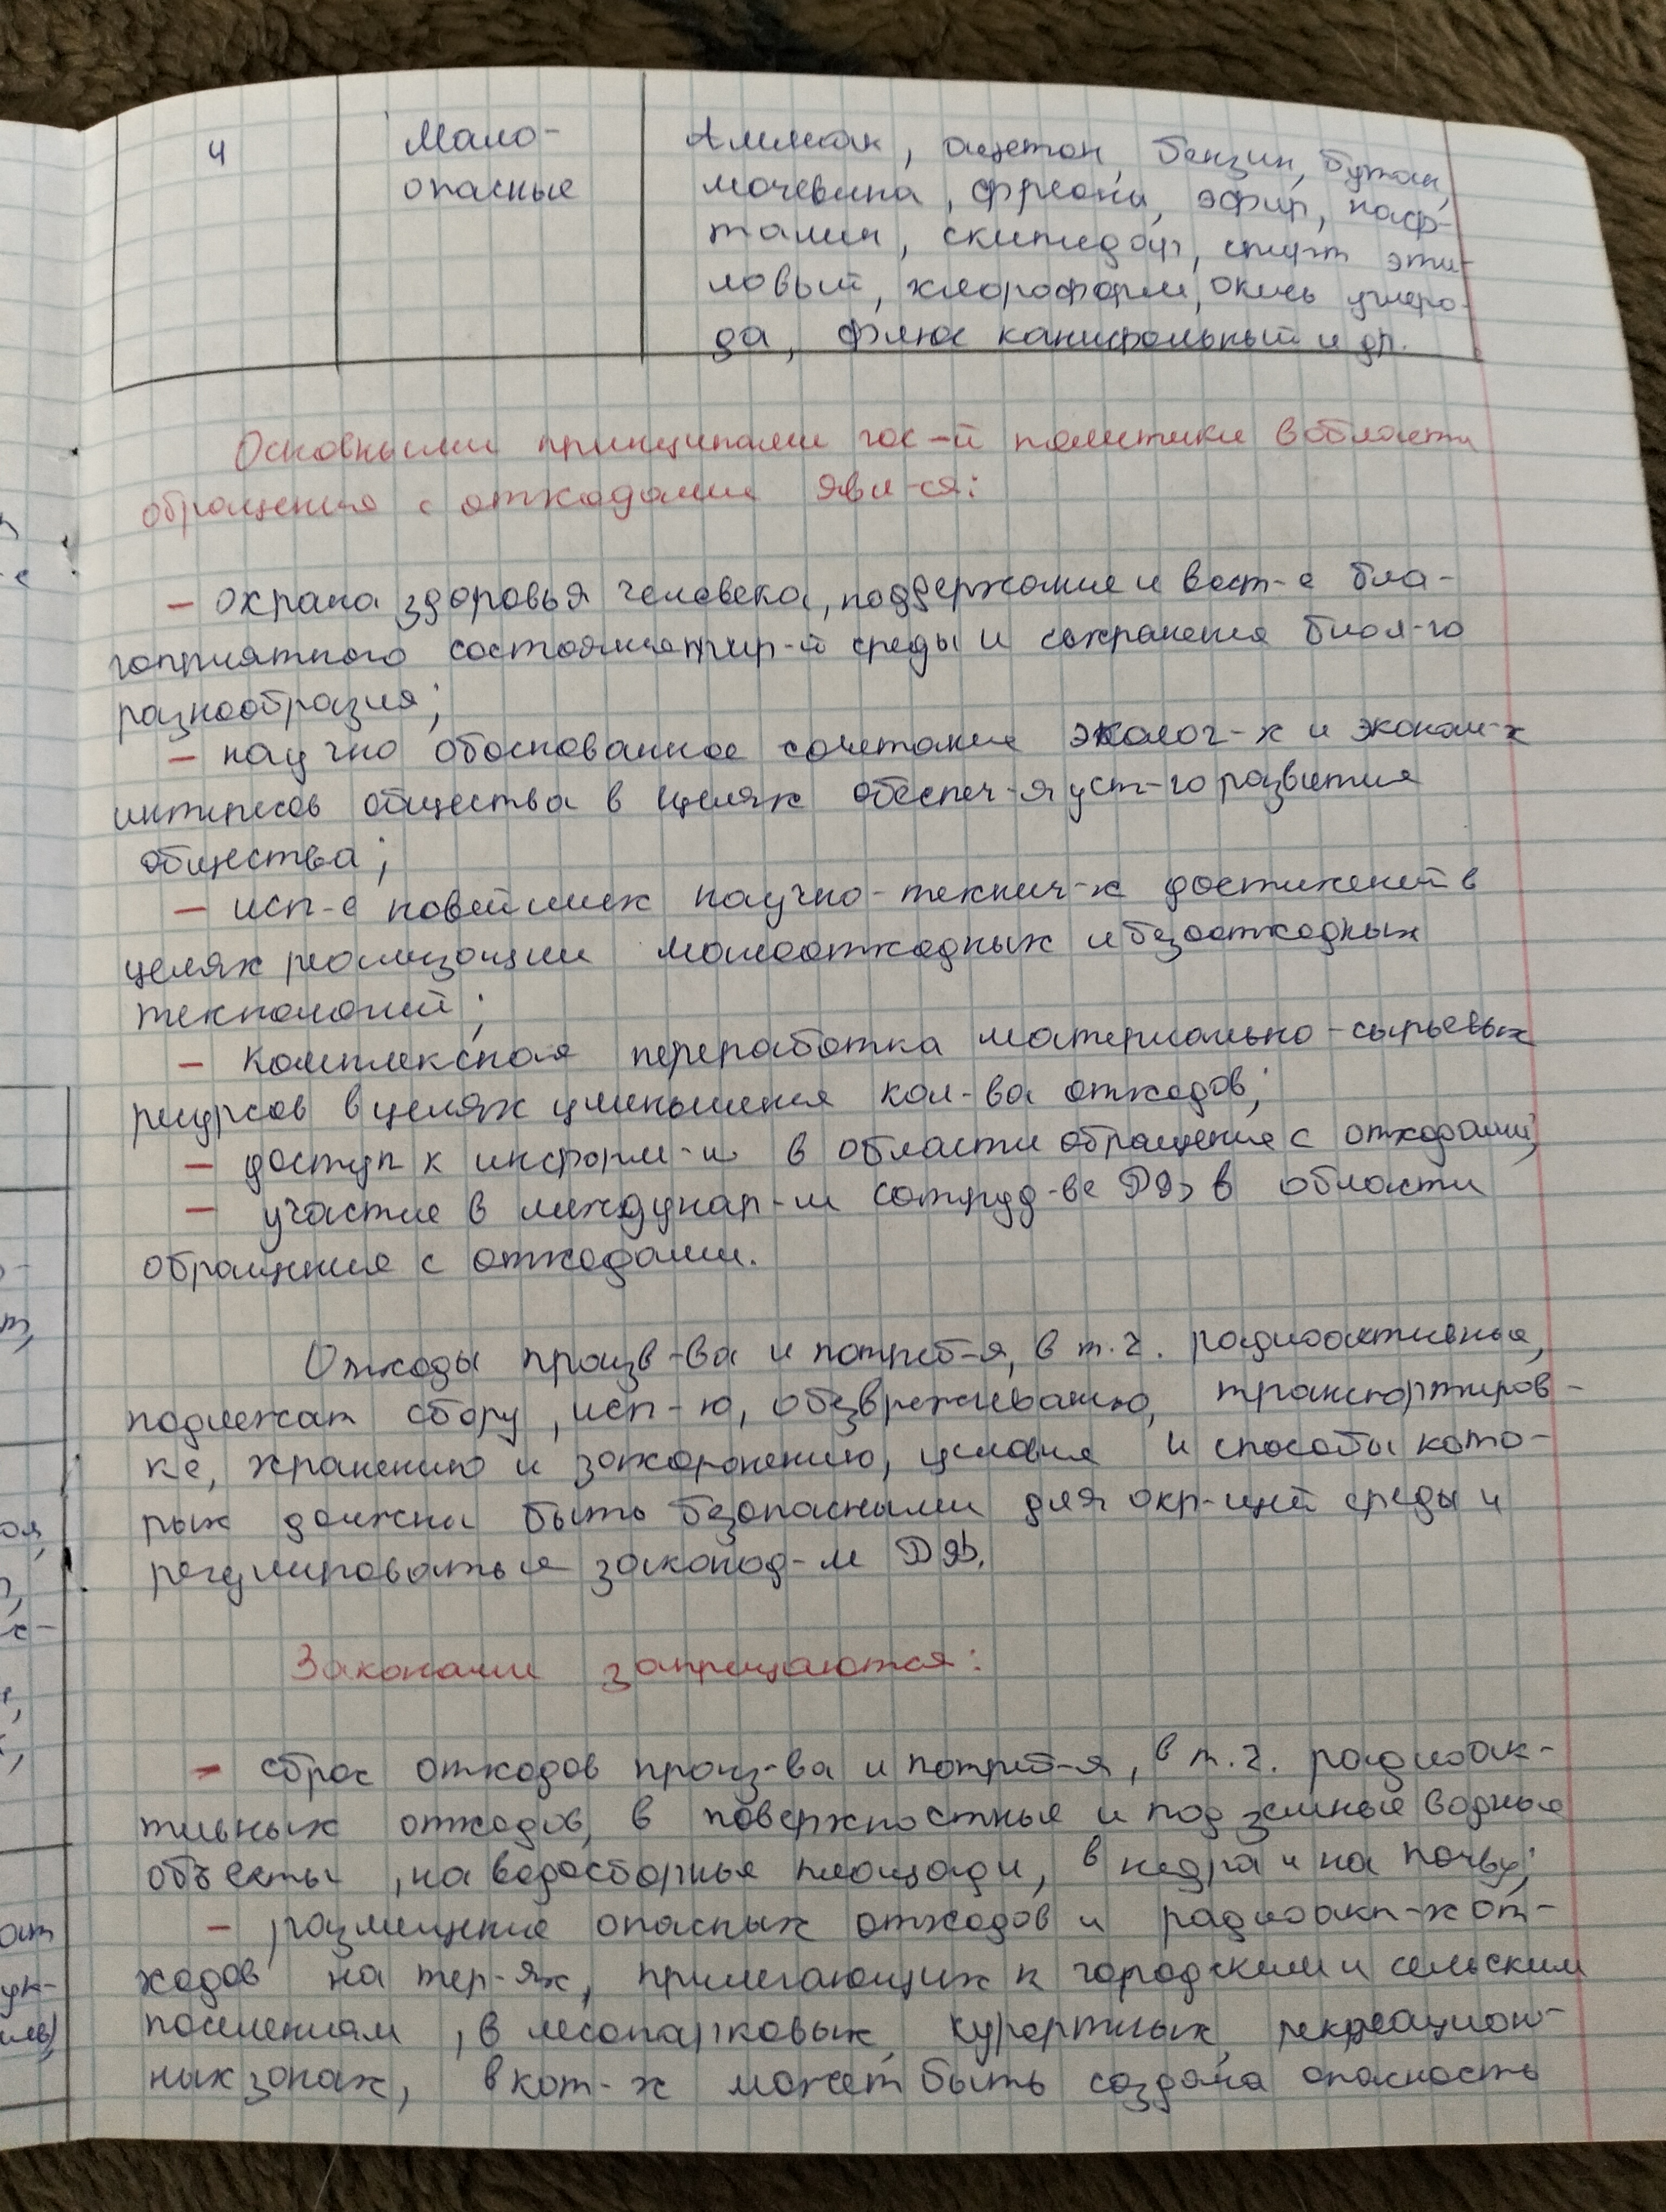 4 Мало- Аммиак, ацетон, бензин, бутан,
опасные мочевина, фреоны, эфир, наф-
талин, скипидар, спирт эти-
ловый, хлороформ, окись углеро-
да, флюс канифольный и др.
Основными принципами гос-й политики в области
обращения с отходами явл-ся:
– охрана здоровья человека, поддержание и вост-е бла-
гоприятного состояния окр-й среды и сохранения биол-го
разнообразия;
– научно обоснованное сочетание эколог-х и эконом-х
интересов общества в целях обеспеч-я уст-го развития
общества;
– исп-е новейших научно-технич-х достижений в
целях реализации малоотходных и безотходных
технологий;
– комплексная переработка материально-сырьевых
ресурсов в целях уменьшения кол-ва отходов;
– доступ к информ-и в области обращения с отходами;
– участие в междунар-м сотруд-ве РФ в области
обращения с отходами.
Отходы произв-ва и потреб-я, в т.ч. радиоактивные,
подлежат сбору, исп-ю, обезвреживанию, транспортиров-
ке, хранению и захоронению, условия и способы кото-
рых должны быть безопасными для окр-щей среды и
регулироваться законод-м РФ.
Законами запрещаются:
– сброс отходов произ-ва и потреб-я, в т.ч. радиоак-
тивных отходов, в поверхностные и подземные водные
объекты, на водосборные площади, в недра и на почву;
– размещение опасных отходов и радиоакт-х от-
ходов на тер-ях, прилегающих к городским и сельским
поселениям, в лесопарковых, курортных, рекреацион-
ных зонах, в кот-х может быть создана опасность